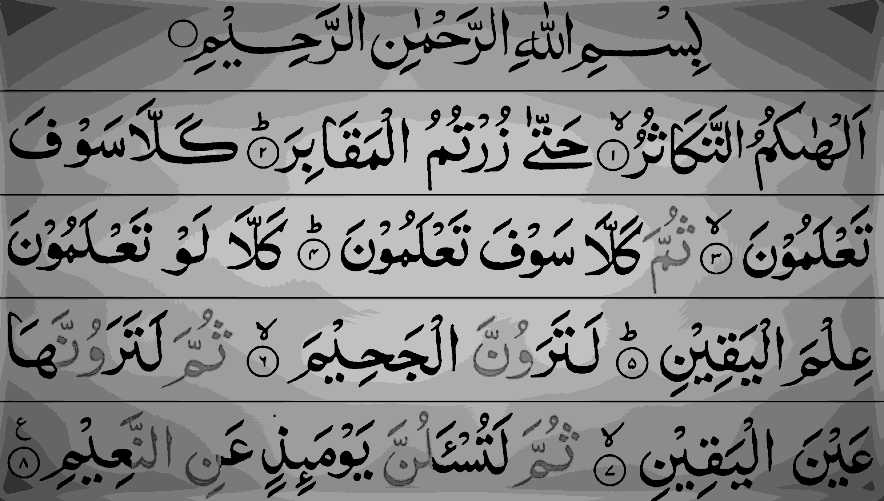 بِسْمِ اللّٰهِ الرَّحْمٰنِ الرَّحِيْمِ ○
اَلْهٰىكُمُ التَّكَاثُرُ ۙ‏﴿۱﴾ حَتّٰى زُرْتُمُ الْمَقَابِرَ ؕ‏﴿۲﴾ كَلَّا سَوْفَ
تَعْلَمُوْنَ ۙ‏﴿۳﴾ ثُمَّ كَلَّا سَوْفَ تَعْلَمُوْنَ ؕ‏﴿۴﴾ كَلَّا لَوْ تَعْلَمُوْنَ
عِلْمَ الْيَقِيْنِ ؕ‏﴿۵﴾ لَتَرَوُنَّ الْجَحِيْمَ ۙ‏﴿۶﴾ ثُمَّ لَتَرَوُنَّهَا
عَيْنَ الْيَقِيْنِ ۙ‏﴿۷﴾ ثُمَّ لَتُسْـَٔلُنَّ يَوْمَٮِٕذٍ عَنِ النَّعِيْمِ ﴿۸﴾ ع